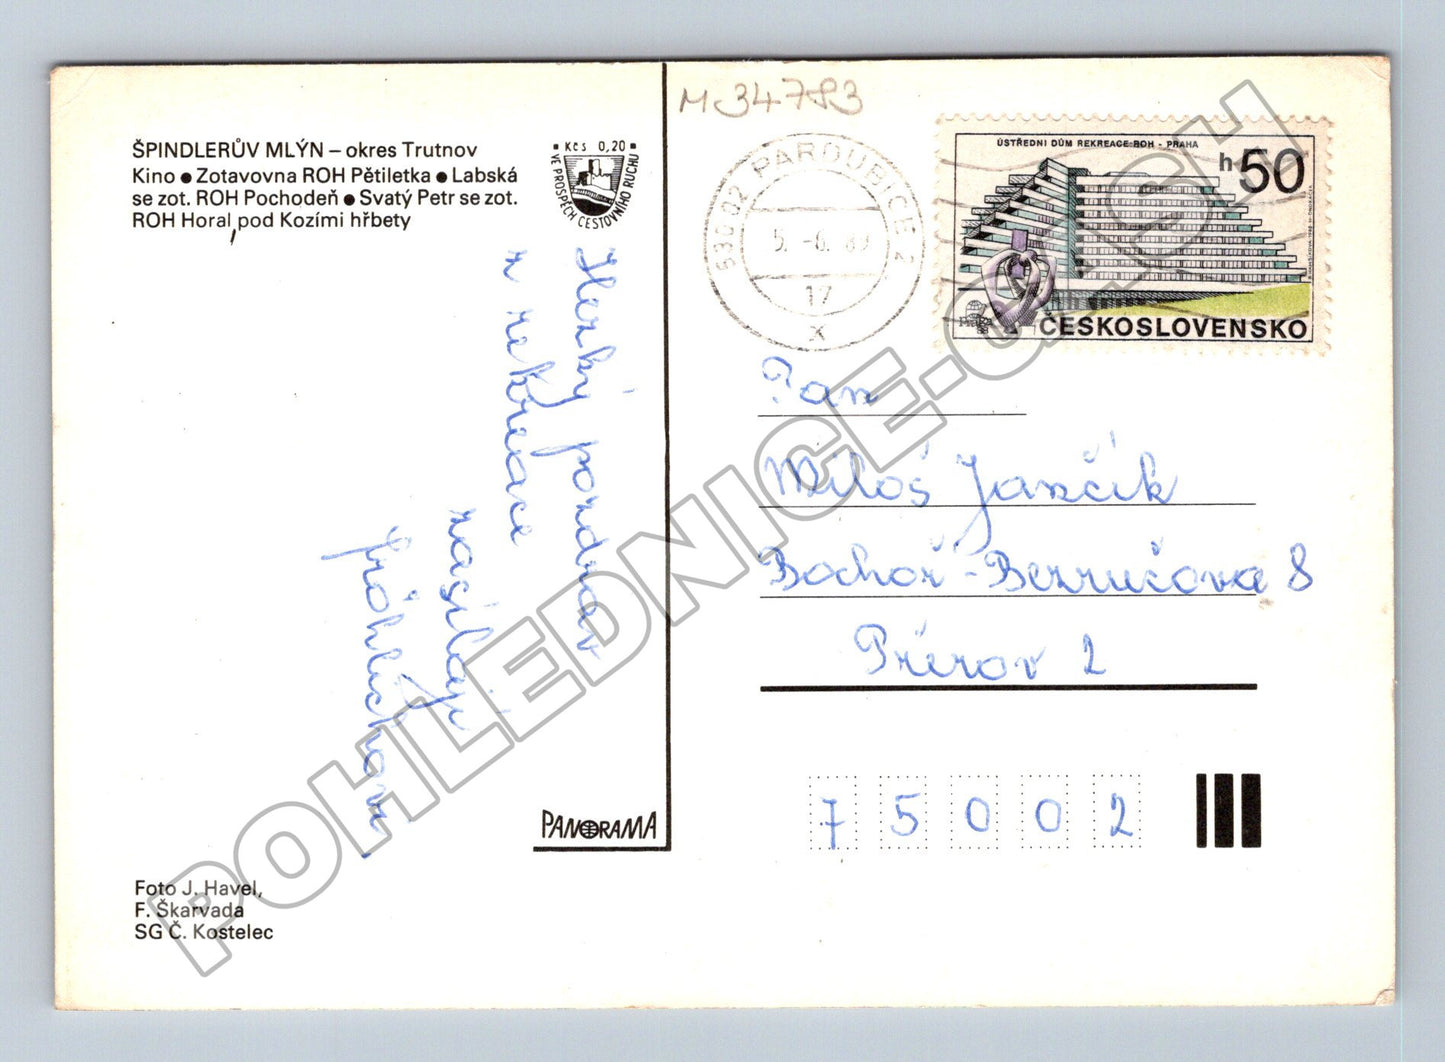 M 34783
ŠPINDLERŮV MLÝN – okres Trutnov
Kino ● Zotavovna ROH Pětiletka ● Labská
se zot. ROH Pochodeň ● Svatý Petr se zot.
ROH Horal, pod Kozími hřbety
Kčs 0,20
VE PROSPĚCH CESTOVNÍHO RUCHU
530 02 PARDUBICE 2
5. -6. 89
17
x
ÚSTŘEDNÍ DŮM REKREACE ROH - PRAHA
h 50
ČESKOSLOVENSKO
Hezký pozdrav
z rekreace
zasílají
Fröhlichova
Pan
Miloš Jančík
Bochoř - Bezručova 8
Přerov 2
75002
PANORAMA
Foto J. Havel,
F. Škarvada
SG Č. Kostelec